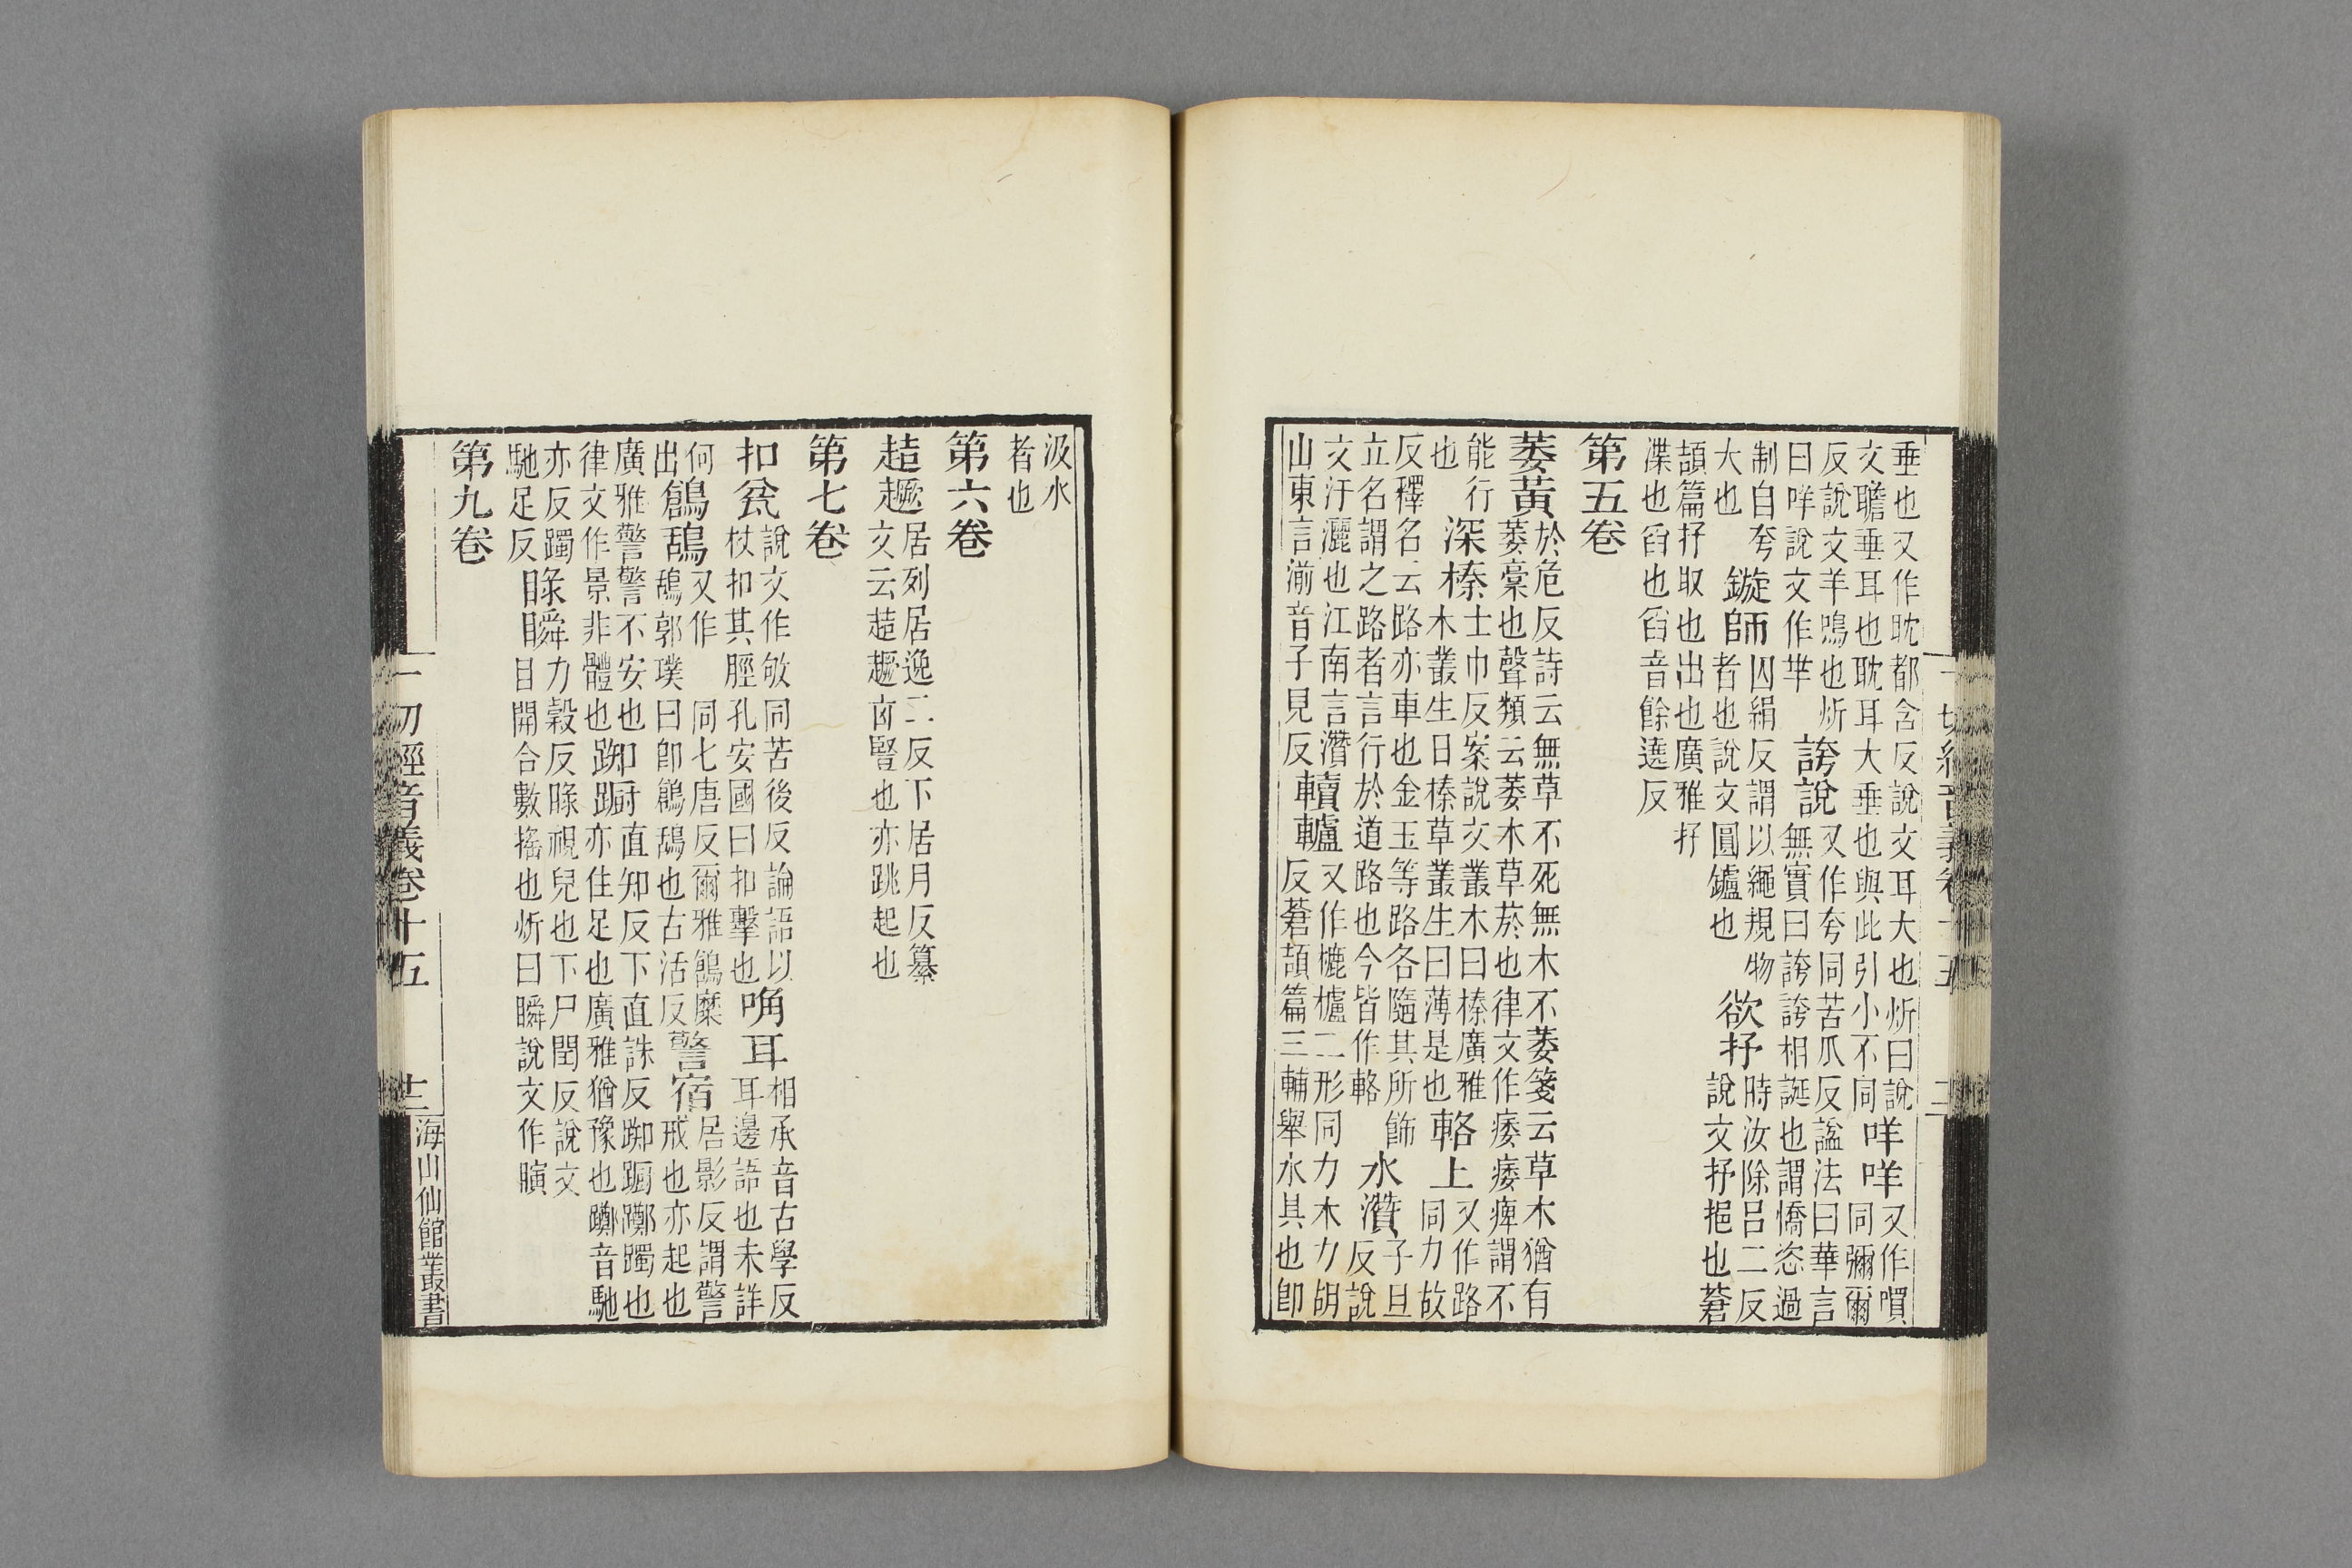 垂也又作耽都含反說文耳大也炘曰說
文聸垂耳也耽耳大垂也與此引小不同
咩咩
又作嘪
同彌爾
反說文羊鳴也炘
曰咩說文作羋
誇說
又作夸同苦爪反諡法曰華言
無實曰誇誇相誕也謂憍恣過
制自夸
大也
鏇師
囚絹反謂以繩規物
者也說文圓鑪也
欲抒
時汝除呂二反
說文抒挹也蒼
頡篇抒取也出也廣雅抒
渫也舀也舀音餘遶反
第五卷
萎黃
於危反詩云無草不死無木不萎箋云草木猶有
萎槀也聲類云萎木草菸也律文作痿痿痺謂不
能行
也
深榛
士巾反案說文叢木曰榛廣雅
木叢生曰榛草叢生曰薄是也
輅上
又作路
同力故
反釋名云路亦車也金玉等路各隨其所飾
立名謂之路者言行於道路也今皆作輅
水灒
子旦
反說
文汙灑也江南言灒
山東言湔音子見反
轒轤
又作樚櫨二形同力木力胡
反蒼頡篇三輔舉水具也卽
汲水
者也
第六卷
趌趰
居列居逸二反下居月反纂
文云趌趰㐫豎也亦跳起也
第七卷
扣瓮
說文作敂同苦後反論語以
杖扣其脛孔安國曰扣擊也
唃耳
相承音古學反
耳邊語也未詳
何
出
鶬鴰
又作 同七唐反爾雅鶬麋
鴰郭璞曰卽鶬鴰也古活反
警宿
居影反謂警
戒也亦起也
廣雅警警不安也
律文作景非體也
踟躕
直知反下直誅反踟躕躑躅也
亦住足也廣雅猶豫也躑音馳
亦反躅
馳足反
睩瞬
力穀反睩視皃也下尸閏反說文
目開合數搖也炘曰瞬說文作瞚
第九卷
一切經音義卷十五
十二
海山仙館叢書